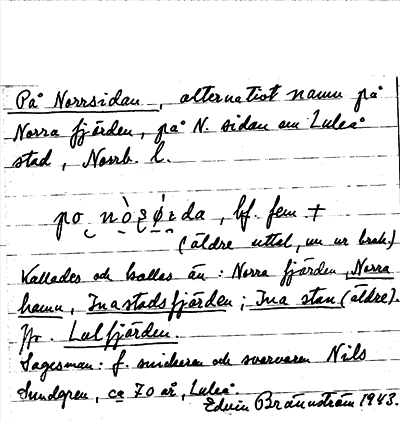 På Norrsidan, alternativt namn på
Norra fjärden, på N. sidan om Luleå
stad, Norrb. l.
bf. fem +
(äldre uttal, nu ur bruk.)
Kallades och kallas än: Norra fjärden, Norra
hamn, Inastadsfjärden; Ina stan (äldre).
Jfr. Lulfjärden.
Sagesman: f. snickaren och svarvaren Nils
Sundgren, ca 70 år, Luleå.
Edvin Brännström 1943.